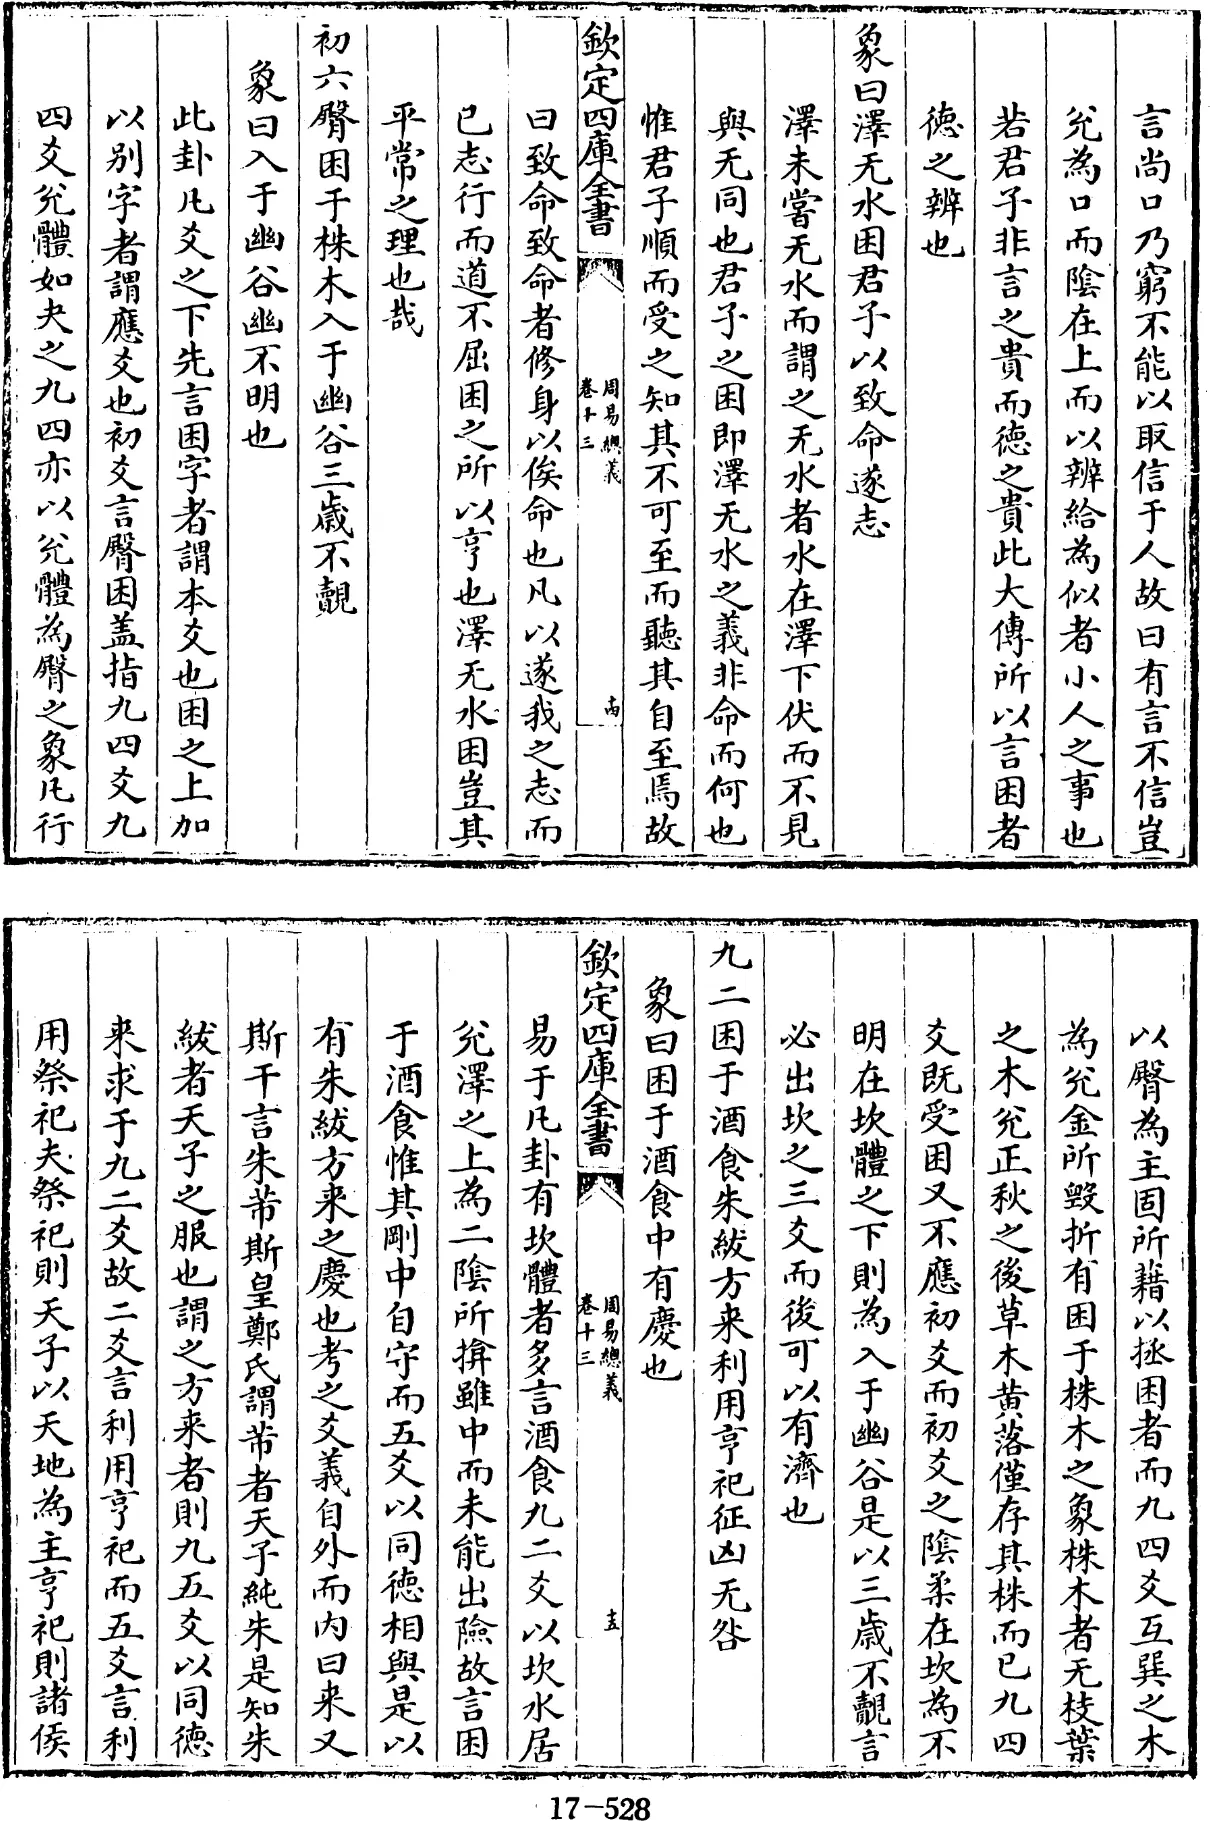 言尚口乃窮不能以取信于人故曰有言不信豈
兌為口而陰在上而以辨給為似者小人之事也
若君子非言之貴而德之貴此大傳所以言困者
德之辨也
象曰澤无水困君子以致命遂志
澤未嘗无水而謂之无水者水在澤下伏而不見
與无同也君子之困即澤无水之義非命而何也
惟君子順而受之知其不可至而聽其自至焉故
欽定四庫全書
周易總義
卷十三
十四
曰致命致命者修身以俟命也凡以遂我之志而
已志行而道不屈困之所以亨也澤无水困豈其
平常之理也哉
初六臀困于株木入于幽谷三歲不覿
象曰入于幽谷幽不明也
此卦凡爻之下先言困字者謂本爻也困之上加
以别字者謂應爻也初爻言臀困盖指九四爻九
四爻兌體如夬之九四亦以兌體為臀之象凡行
以臀為主固所藉以拯困者而九四爻互巽之木
為兌金所毀折有困于株木之象株木者无枝葉
之木兌正秋之後草木黄落僅存其株而已九四
爻既受困又不應初爻而初爻之陰柔在坎為不
明在坎體之下則為入于幽谷是以三歲不覿言
必出坎之三爻而後可以有濟也
九二困于酒食朱紱方来利用亨祀征凶无咎
象曰困于酒食中有慶也
欽定四庫全書
周易總義
卷十三
十五
易于凡卦有坎體者多言酒食九二爻以坎水居
兌澤之上為二陰所揜雖中而未能出險故言困
于酒食惟其剛中自守而五爻以同德相與是以
有朱紱方来之慶也考之爻義自外而内曰来又
斯干言朱芾斯皇鄭氏謂芾者天子純朱是知朱
紱者天子之服也謂之方来者則九五爻以同德
来求于九二爻故二爻言利用亨祀而五爻言利
用祭祀夫祭祀則天子以天地為主亨祀則諸侯
17-528